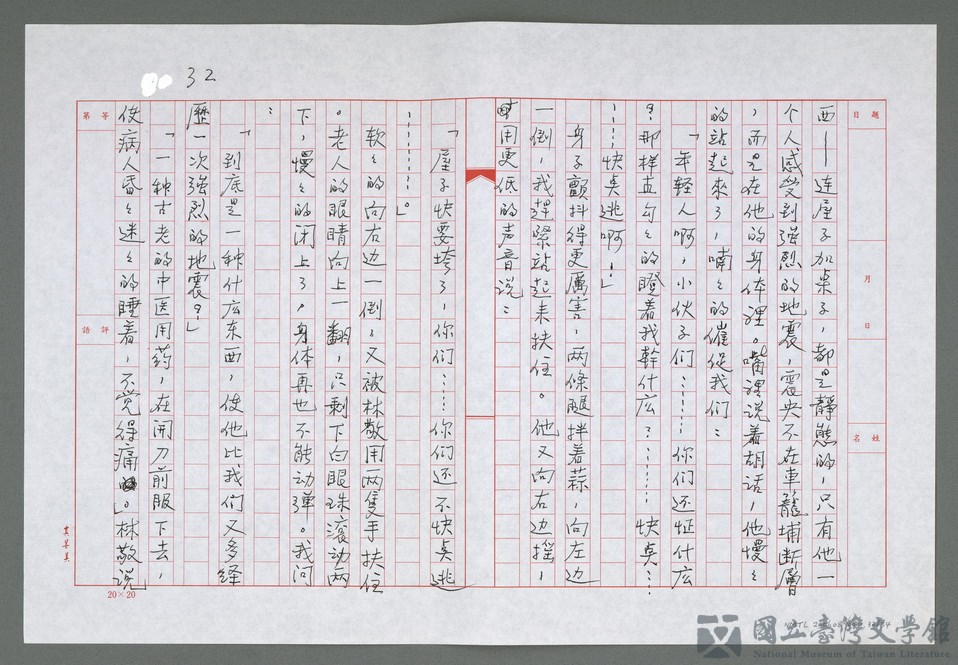 32
題目
月
日
姓名
西——连屋子加桌子,都是静態的,只有他一
个人感受到強烈的地震,震央不在車籠埔断層
,而是在他的身体裡。嘴裡说着胡话,他慢々
的站起來了,喃々的催促我们:
「年轻人啊,小伙子们……你们还怔什広
?那样直勾々的瞪着我幹什広?……快臭…
……快臭逃啊!」
身子顫抖得更厲害,两條腿拌着蒜,向左边
一倒,我趕緊站起来扶住。他又向右边摇,
用更低的声音说:
「屋子快要垮了,你们……你们还不快臭逃
……。」
软々的向右边一倒,又被林敬用两隻手扶住
。老人的眼睛向上一翻,只剩下白眼珠滚动两
下,慢々的闭上了,身体再也不能动弹。我问
:
「到底是一种什広东西,使他比我们又多経
歷一次強烈的地震?」
「一种古老的中医用药,在開刀前服下去,
使病人昏々迷々的睡着,不觉得痛。」林敬说
等第
評語
20×20
國立臺灣文學館
National Museum of Taiwan Literature